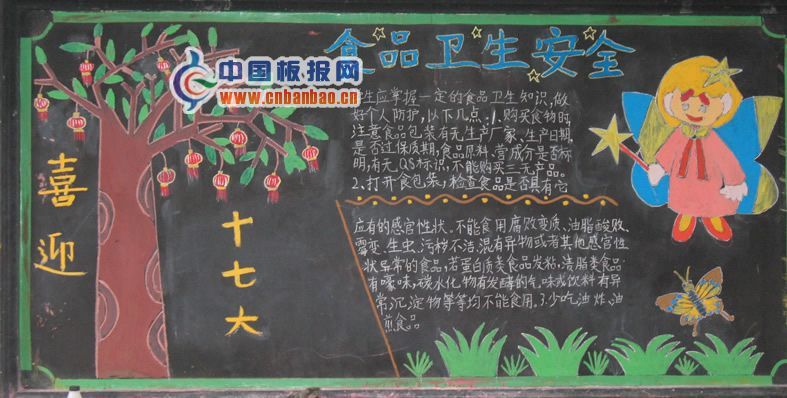 食品卫生安全
中国板报网
www.cnbanbao.cn
喜迎
十七大
生应掌握一定的食品卫生知识,做
好个人防护,以下几点:1、购买食物时
注意食品包装有无生产厂家、生产日期,
是否过保质期,食品原料、营成分是否标
明,有无QS标识,不能购买三无产品。
2、打开食包装,检查食品是否具有它
应有的感官性状。不能食用腐败变质、油脂酸败、
霉变、生虫、污秽不洁、混有异物或者其他感官性
状异常的食品,若蛋白质类食品发粘,渍脂类食品
有嚎味,碳水化物有发酵的气味或饮料有异
常沉淀物等等均不能食用。3.少吃油炸、油
煎食品